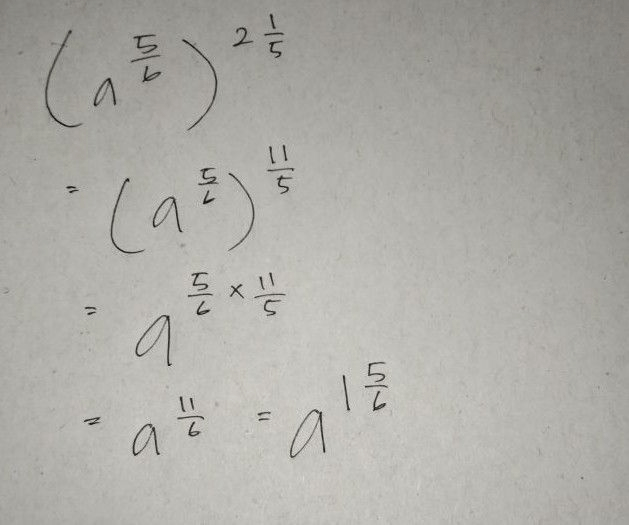 (a^{\frac{5}{6}})^{2\frac{1}{5}}
= (a^{\frac{5}{6}})^{\frac{11}{5}}
= a^{\frac{5}{6} × \frac{11}{5}}
= a^{\frac{11}{6}} = a^{1\frac{5}{6}}